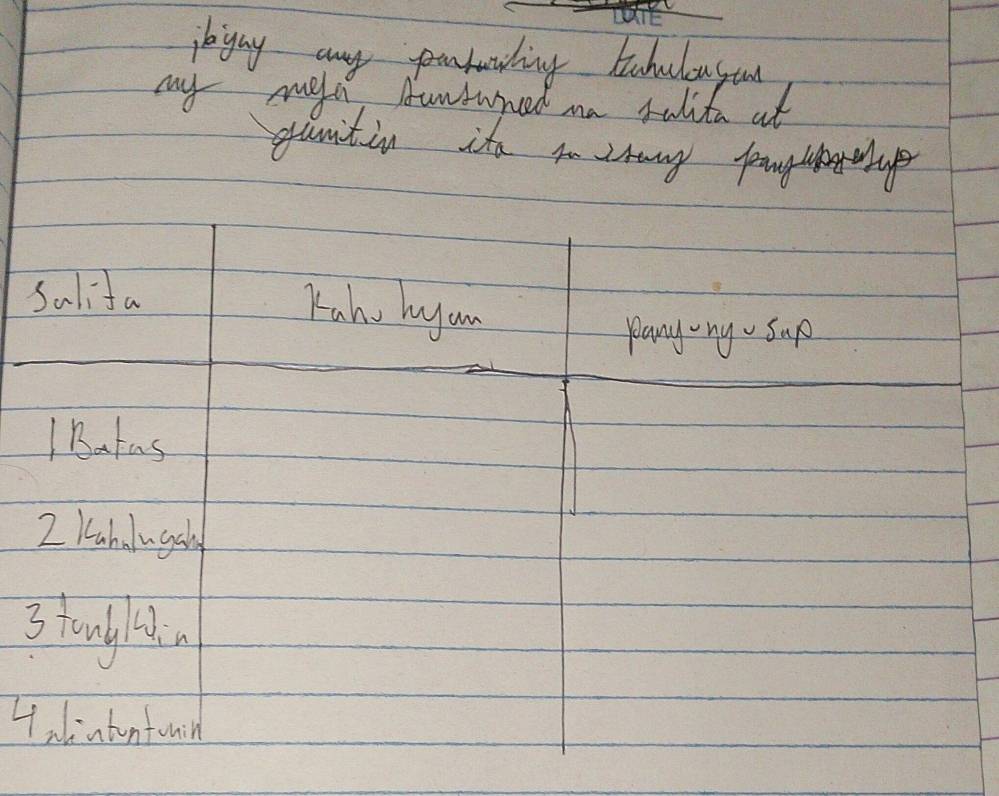 DATE
ibigay ang pansariling kahulugan
ng mga sumsunod na salita at
gamitin ito sa isang pangungusap
Salita Kahulugan pangungusap
1 Batas
2 Kahalugahn
3 tungkulin
4 alintuntunin